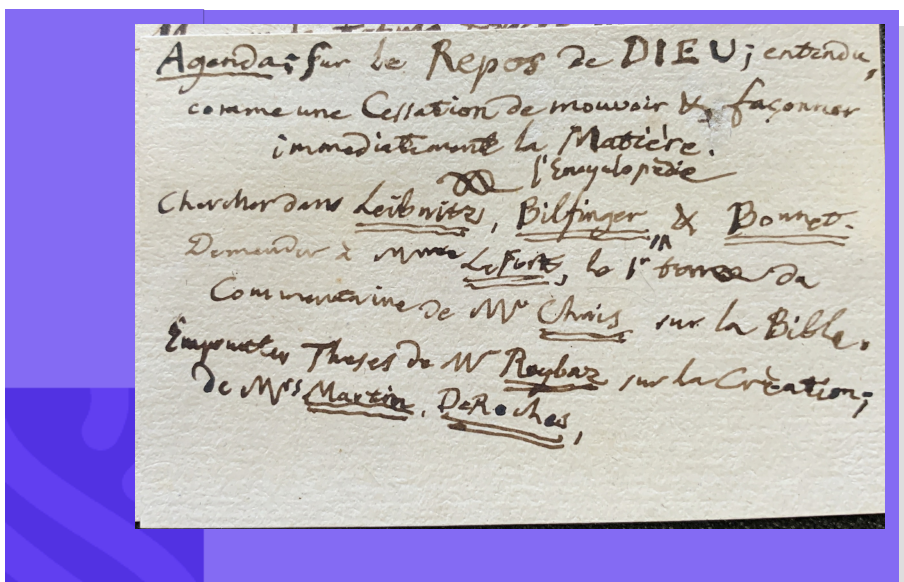 Agenda; sur le Repos de DIEU; entendu,
comme une Cessation de mouvoir & façonner
immediatement la Matière.
l'Encyclopèdie
Chercher dans Leibnitz, Bilfinger & Bonnet.
Demander à Mme LeFort, le 1r tome du
Commentaire de Mr Chais sur la Bible.
Emprunter Theses de Mr Reybaz sur la Création;
de Mrs Martin, DeRoches,